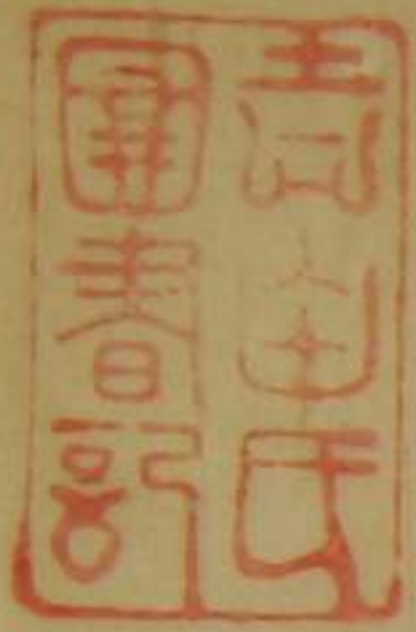 青山氏
圖書記